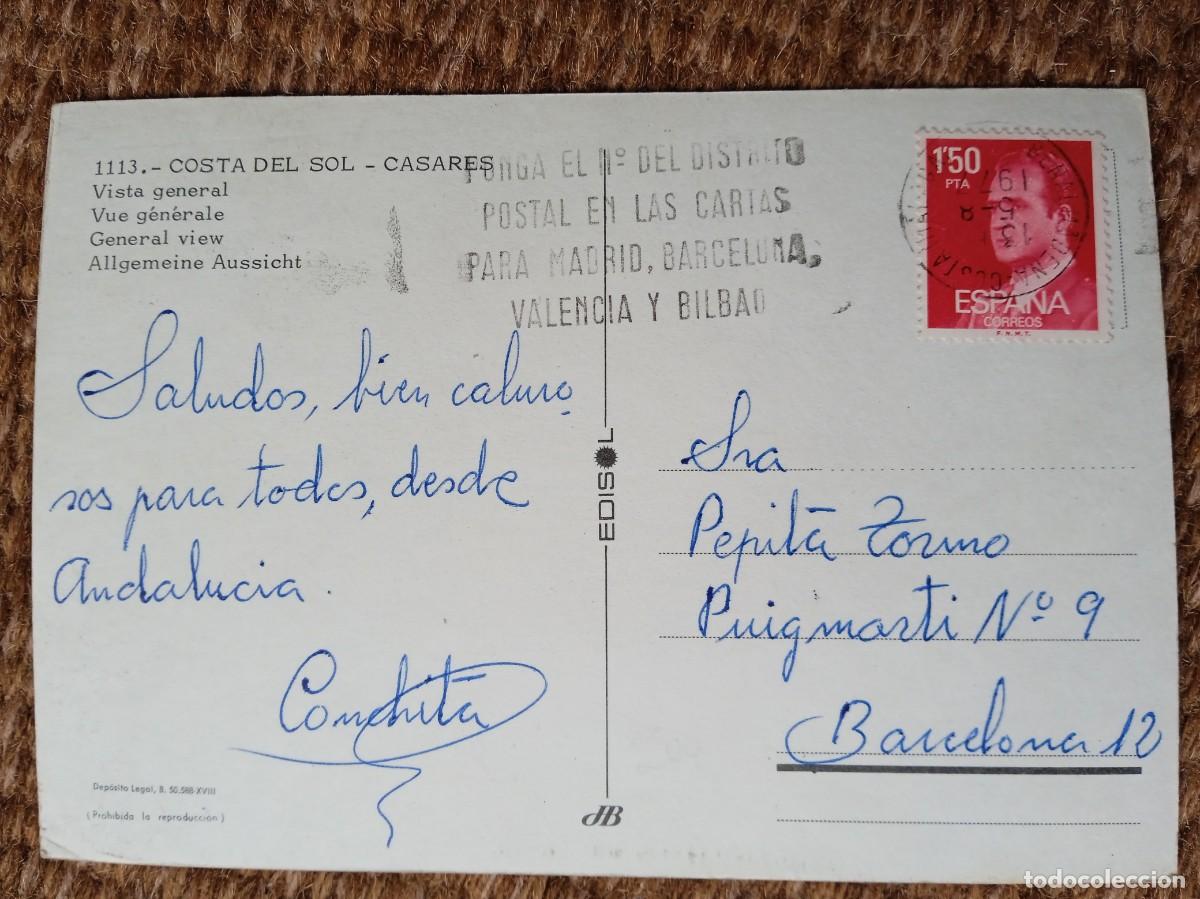 1113.- COSTA DEL SOL - CASARES
Vista general
Vue générale
General view
Allgemeine Aussicht
PONGA EL Nº DEL DISTRITO
POSTAL EN LAS CARTAS
PARA MADRID, BARCELONA,
VALENCIA Y BILBAO
1'50
PTA
ESPAÑA
CORREOS
F.N.M.T.
Saludos, bien caluro
sos para todos, desde
Andalucia.
Conchita
EDISOL
Sra
Pepita Tormo
Puigmarti Nº 9
Barcelona 12
Depósito Legal, B. 50.588-XVIII
(Prohibida la reproducción)
JB
todocoleccion